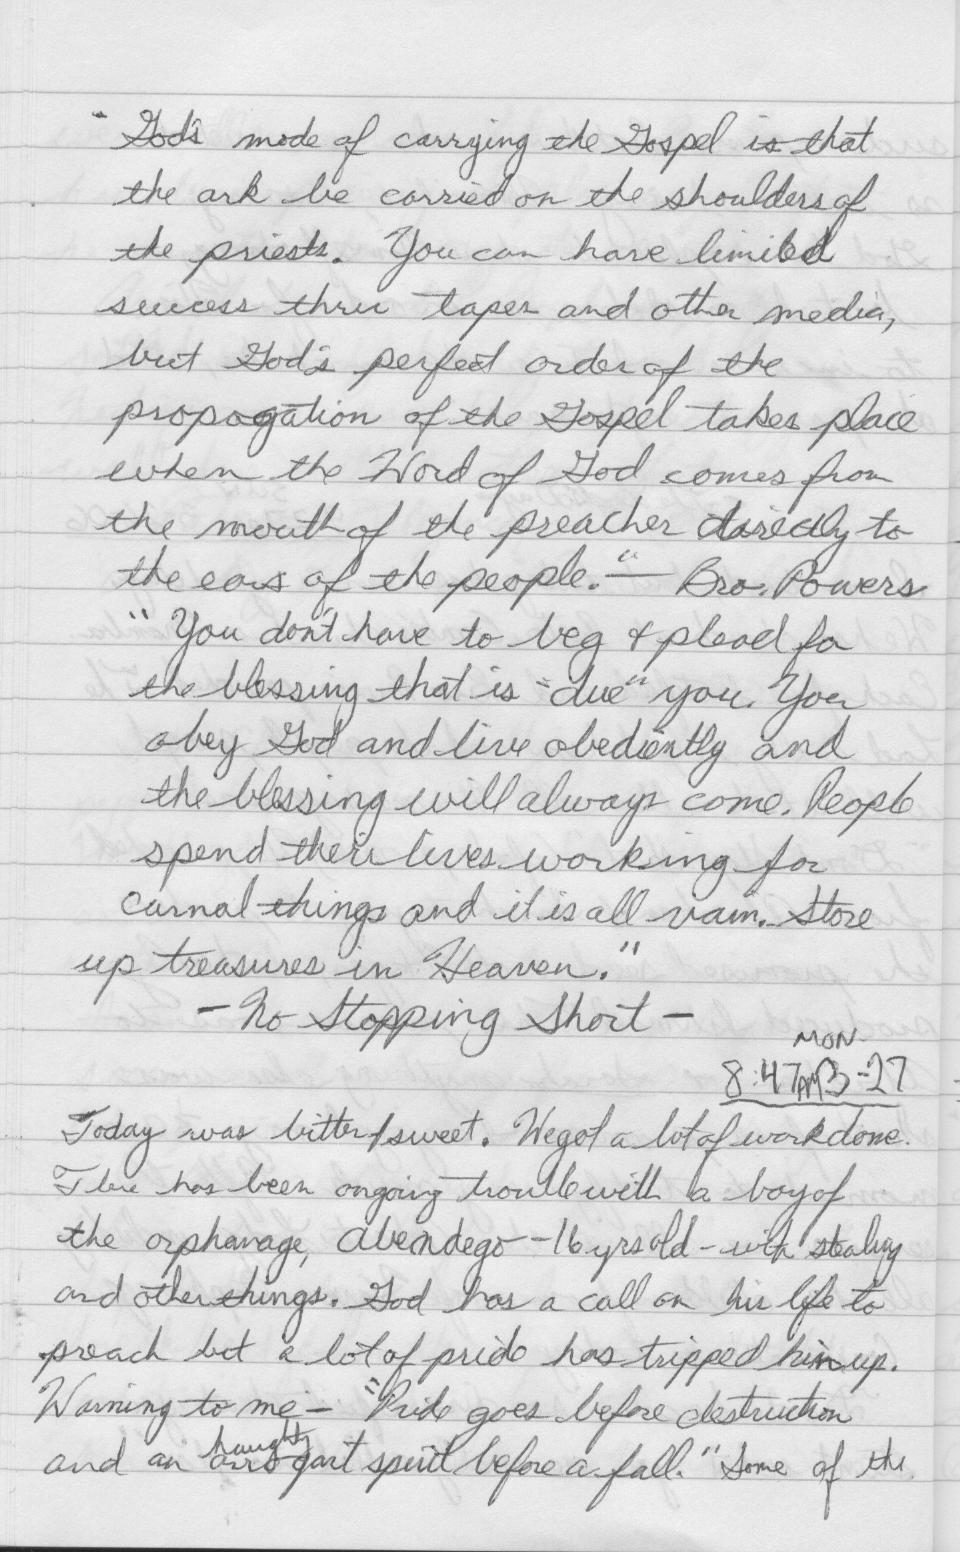 "God's mode of carrying the Gospel is that
the ark be carried on the shoulders of
the priests. You can have limited
success thru tapes and other media,
but God's perfect order of the
propogation of the Gospel takes place
when the Word of God comes from
the mouth of the preacher directly to
the ears of the people." — Bro. Powers
"You don't have to beg & plead for
the blessing that is "due" you. You
obey God and live obediently and
the blessing will always come. People
spend their lives working for
carnal things and it is all vain. Store
up treasures in Heaven."
- No Stopping Short -
MON.
8:47 AM 3-27
Today was bitter/sweet. We got a lot of work done.
There has been ongoing trouble with a boy of
the orphanage, Abendego - 16 yrs old - with stealing
and other things. God has a call on his life to
preach but a lot of pride has tripped him up.
Warning to me - "Pride goes before destruction
haughty
and an arrogant spirit before a fall." Some of the